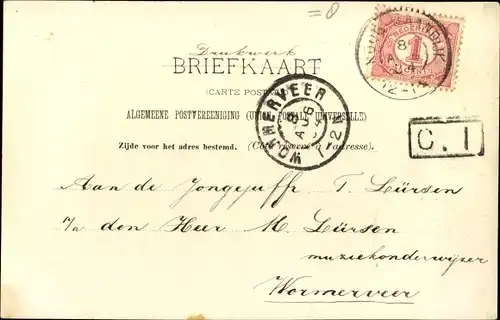 =8
Drukwerk
BRIEFKAART
(CARTE POSTALE)
ALGEMEENE POSTVEREENIGING (UNION POSTALE UNIVERSELLE)
Zijde voor het adres bestemd. (Côté réservé à l'adresse).
NEDERLAND
1
CENT
8
12-1
WORMERVEER
8 AUG
1-2 N
C. I
Aan de Jongejuffr. T. Lürsen
p/a den Heer M. Lürsen
muziekonderwijzer
Wormerveer